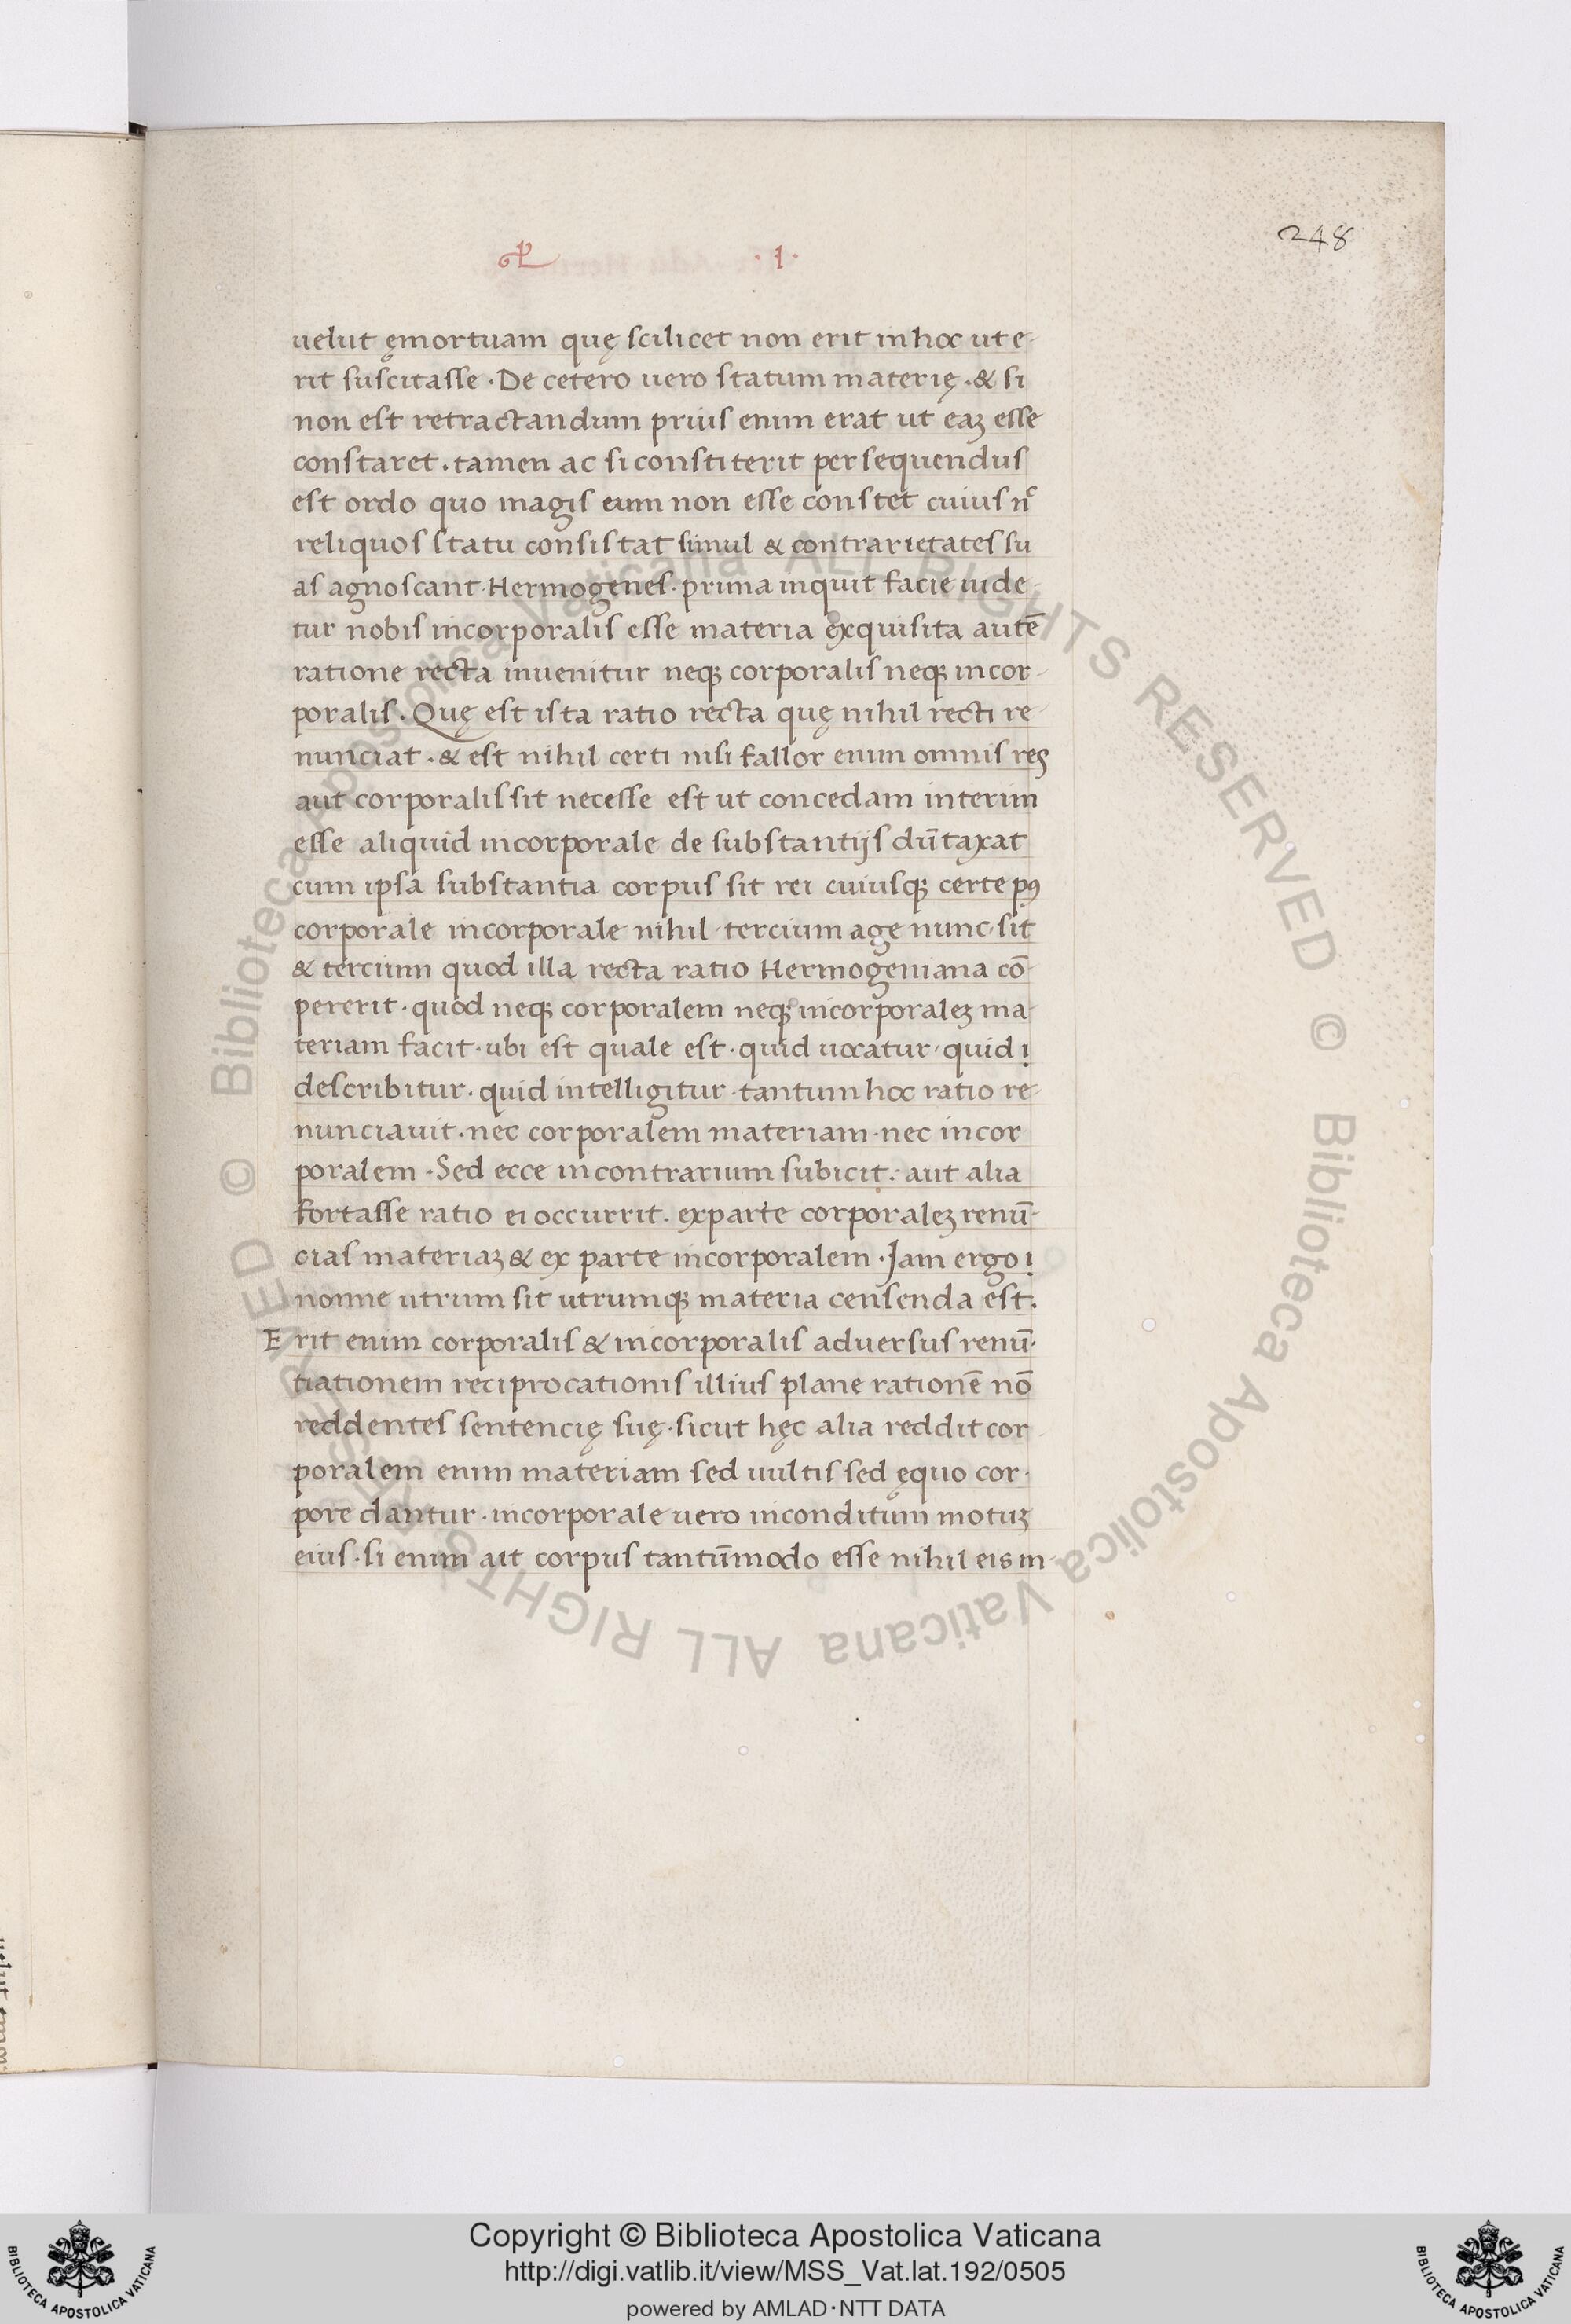 248
· 1 ·
uelut ęmortuam quę scilicet non erit in hoc ut e-
rit suscitasse · De cetero uero statum materię · & si
non est retractandum prius enim erat ut eaꝫ esse
constaret · tamen ac si constiterit persequendus
est ordo quo magis eum non esse constet cuius n̄c
reliquos statu consistat simul & contrarietates su
as agnoscant · Hermogenes · prima inquit facie uide-
tur nobis incorporalis esse materia exquisita autē
ratione recta inuenitur neqꝫ corporalis neqꝫ incor-
poralis · Quę est ista ratio recta quę nihil recti re-
nunciat · & est nihil certi nisi fallor enim omnis res
aut corporalis sit necesse est ut concedam interim
esse aliquid incorporale de substantijs dūtaxat
cum ipsa substantia corpus sit rei cuiusqꝫ certe pꝰ
corporale incorporale nihil · tercium age nunc · sit
& tercium quod illa recta ratio Hermogeniana cō-
pererit · quod neqꝫ corporalem neqꝫ incorporaleꝫ ma-
teriam facit · ubi est quale est · quid uocatur · quid ı
describitur · quid intelligitur · tantum hoc ratio re-
nunciauit · nec corporalem materiam · nec incor
poralem · Sed ecce in contrarium subicit · aut alia
fortasse ratio ei occurrit · ex parte corporaleꝫ renū-
cias materiaꝫ & ex parte incorporalem · Jam ergo ı
nonne utrum sit utrumqꝫ materia censenda est.
Erit enim corporalis & incorporalis aduersus renū-
tiationem reciprocationis illius plane rationē nō
reddentes sentencię suę · sicut hęc alia reddit cor
poralem enim materiam sed uultis sed ęquo cor-
pore dantur · incorporale uero inconditum motuꝫ
eius · si enim ait corpus tantūmodo esse nihil eis in-
© Biblioteca Apostolica Vaticana ALL RIGHTS RESERVED © Biblioteca Apostolica Vaticana ALL RIGHTS RESERVED
Copyright © Biblioteca Apostolica Vaticana
http://digi.vatlib.it/view/MSS_Vat.lat.192/0505
powered by AMLAD·NTT DATA
BIBLIOTECA APOSTOLICA VATICANA
BIBLIOTECA APOSTOLICA VATICANA